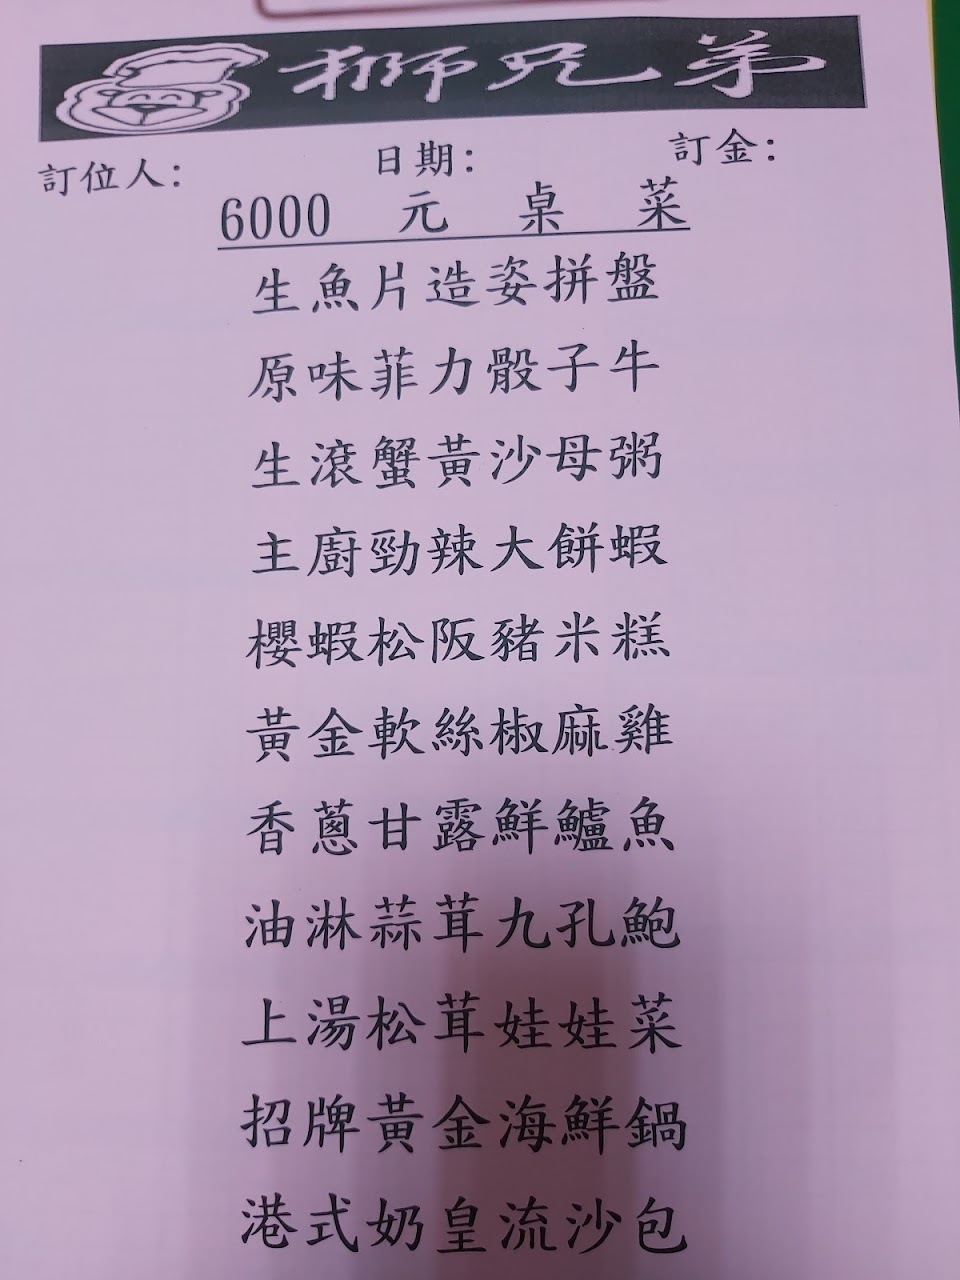 獅兄弟
訂位人: 日期: 訂金:
6000 元 桌 菜
生魚片造姿拼盤
原味菲力骰子牛
生滾蟹黃沙母粥
主廚勁辣大餅蝦
櫻蝦松阪豬米糕
黃金軟絲椒麻雞
香蔥甘露鮮鱸魚
油淋蒜茸九孔鮑
上湯松茸娃娃菜
招牌黃金海鮮鍋
港式奶皇流沙包